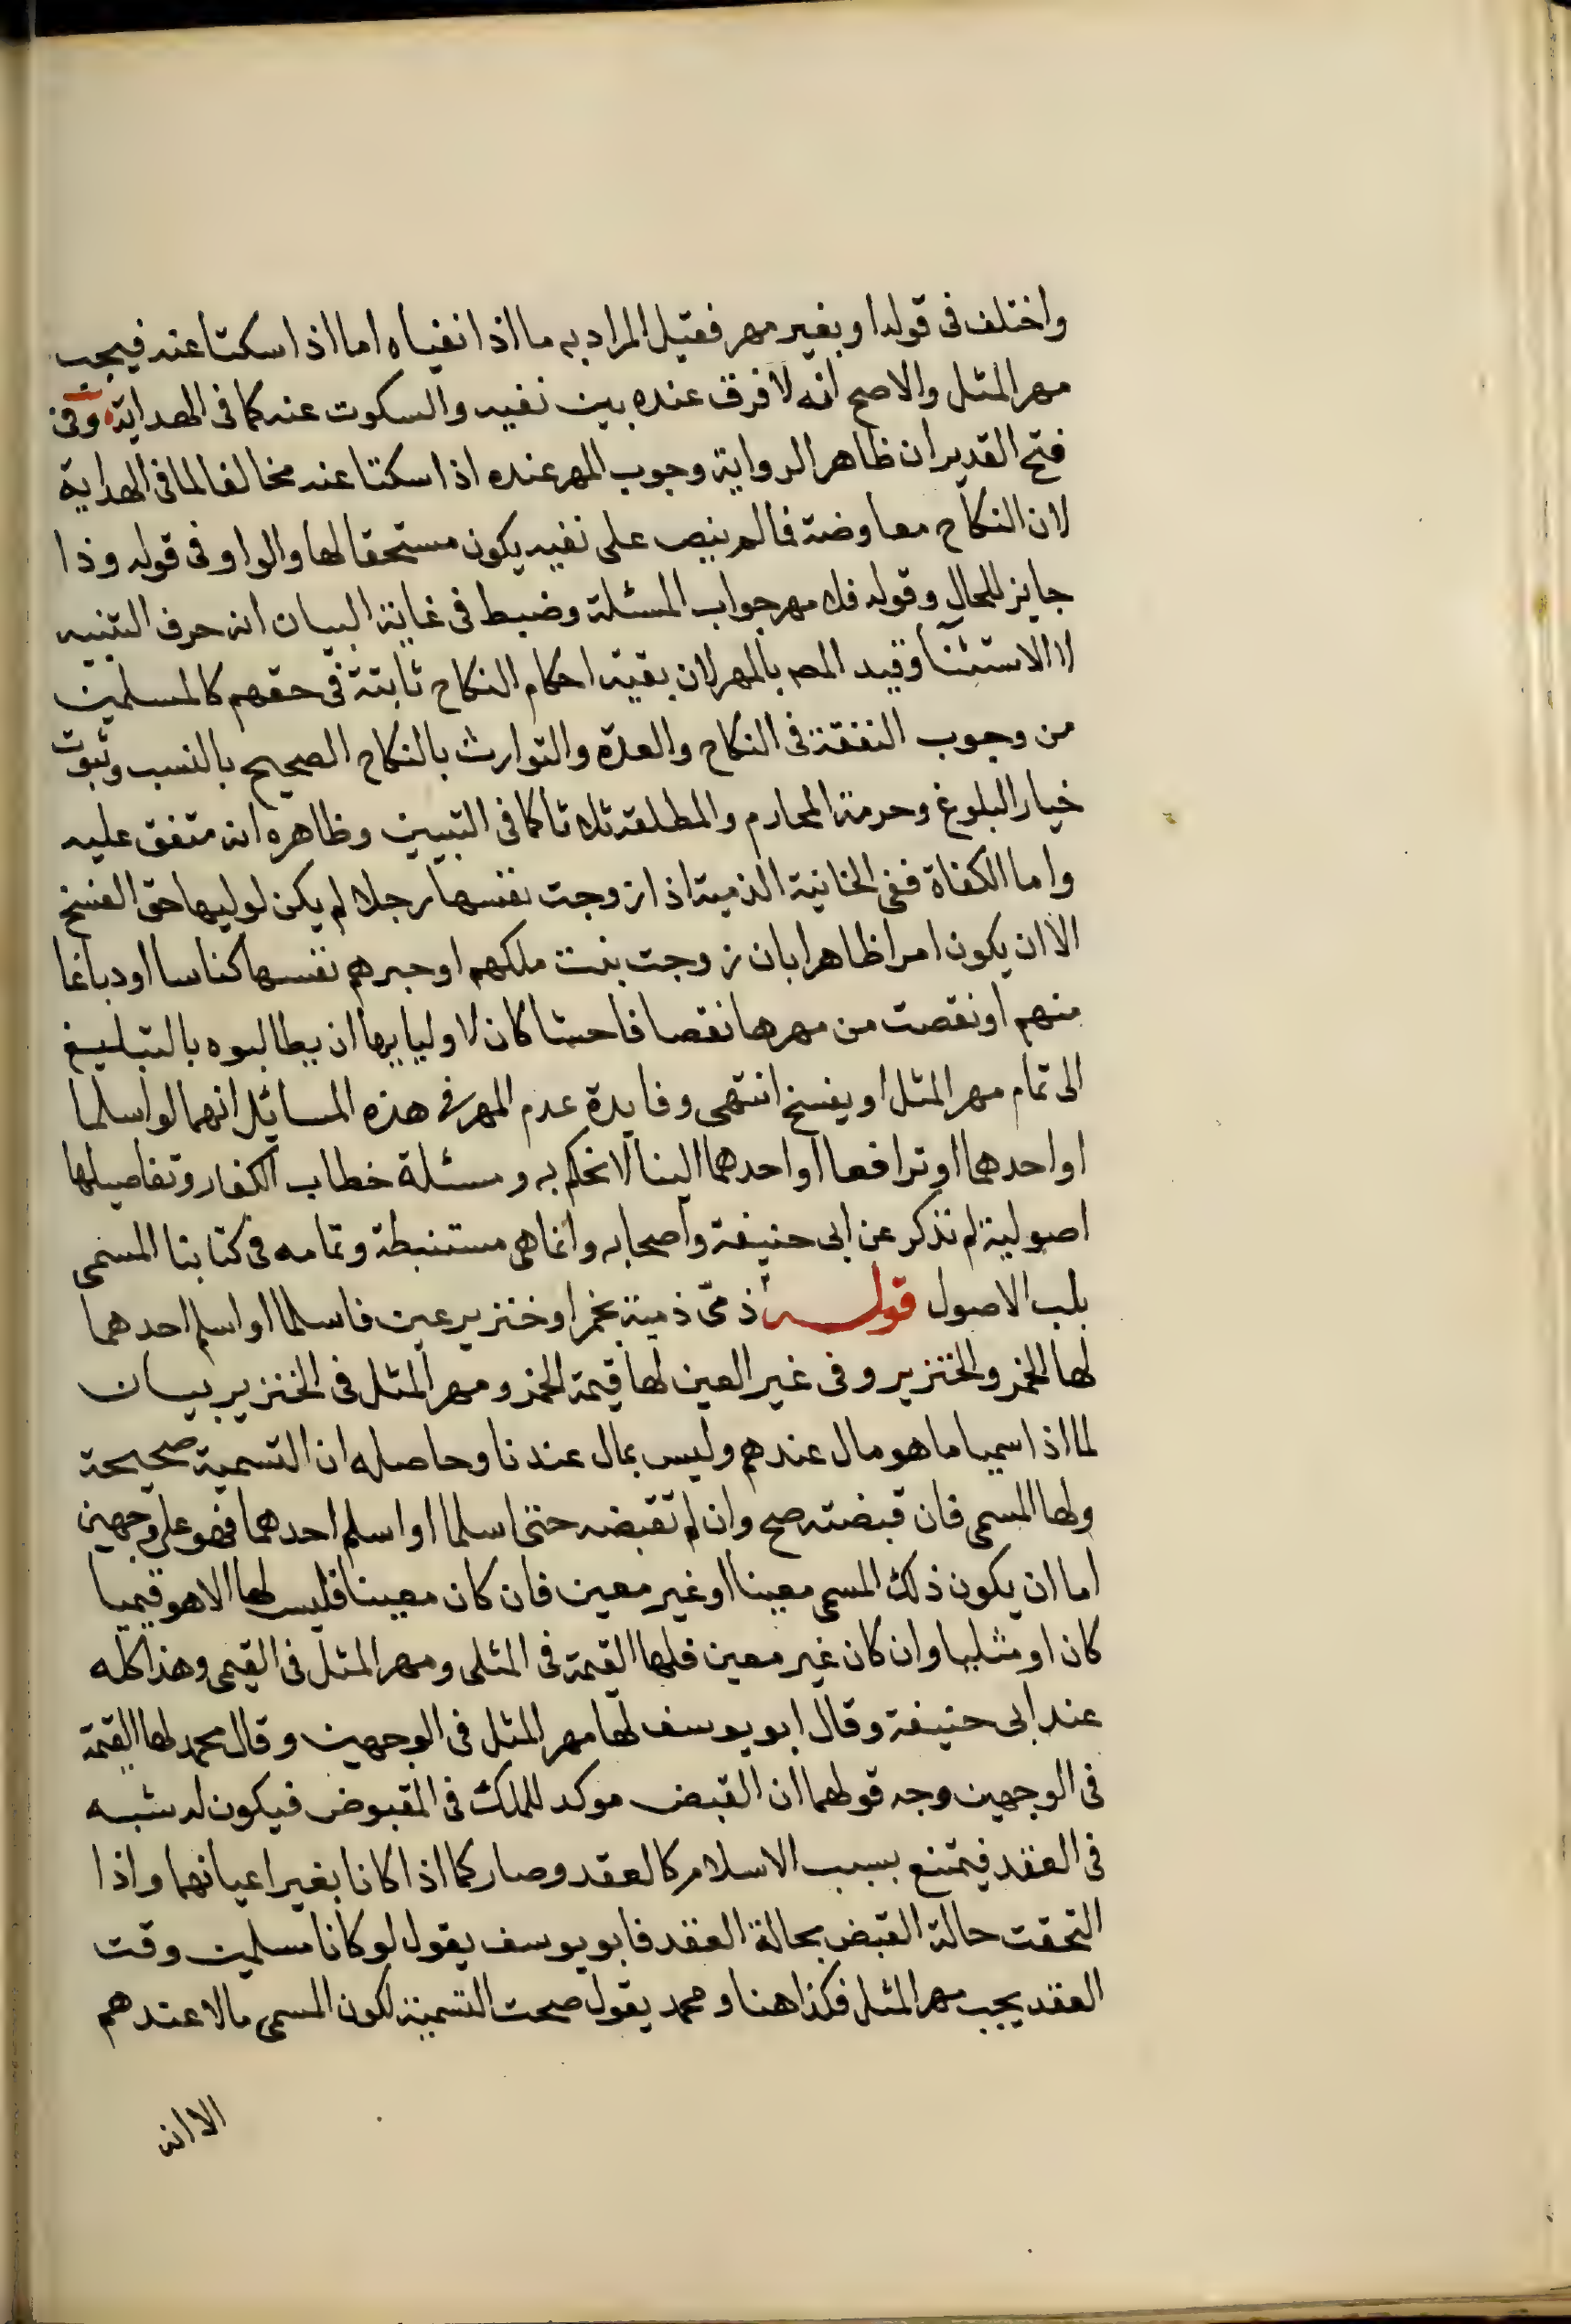 واختلف فى قوله او بغير مهر فقيل المراد به ما اذا نفياه اما اذا سكتا عنه فيجب
مهر المثل والاصح انه لا فرق عنده بين نفيه والسكوت عنه كما فى الهداية وفى
فتح القدير ان ظاهر الرواية وجوب المهر عنده اذا سكتا عنه مخالفا لما فى الهداية
لان النكاح معاوضة فما لم ينص على نفيه يكون مستحقا لها والواو فى قوله وذا
جايز للحال وقوله فلا مهر جواب المسئلة وضبط فى غاية البيان انه حرف التنبيه
لا الاستثنأ وقيد المص بالمهر لان بقية احكام النكاح ثابتة فى حقهم كالمسلمين
من وجوب النفقة فى النكاح والعدة والتوارث بالنكاح الصحيح بالنسب وثبوت
خيار البلوغ وحرمة المحارم والمطلقة ثلاثا كما فى التبيين وظاهره انه متفق عليه
واما الكفاة ففى الخانية الذمية اذا زوجت نفسها رجلا لم يكن لوليها حق الفسخ
الا ان يكون امرا ظاهرا بان زوجت بنت ملكهم او حبرهم نفسها كناسا او دباغا
منهم او نقصت من مهرها نقصا فاحشا كان لاوليايها ان يطالبوه بالتبليغ
الى تمام مهر المثل او يفسخ انتهى وفايدة عدم المهر فى هذه المسائل انهما لو اسلما
او احدهما او ترافعا او احدهما الينا لا نحكم به ومسئلة خطاب الكفار وتفاصيلها
اصولية لم تذكر عن ابى حنيفة واصحابه وانما هى مستنبطة وتمامه فى كتابنا المسمى
بلب الاصول قوله ذمى ذمية بخمر او خنزير عين فاسلما او اسلم احدهما
لها الخمر والخنزير وفى غير العين لها قيمة الخمر ومهر المثل فى الخنزير بيان
لما اذا سميا ما هو مال عندهم وليس بمال عندنا وحاصله ان التسمية صحيحة
ولها المسمى فان قبضته صح وان لم تقبضه حتى اسلما او اسلم احدهما فهو على وجهين
اما ان يكون ذلك المسمى معينا او غير معين فان كان معينا فليس لها الا هو قيميا
كان او مثليا وان كان غير معين فلها القيمة فى المثلى ومهر المثل فى القيمى وهذا كله
عند ابى حنيفة وقال ابو يوسف لها مهر المثل فى الوجهين وقال محمد لها القيمة
فى الوجهين وجه قولهما ان القبض موكد للملك فى المقبوض فيكون له شبه
فى العقد فيمتنع بسبب الاسلام كالعقد وصار كما اذا كانا بغير اعيانهما واذا
التحقت حالة القبض بحالة العقد فابو يوسف يقول لو كانا مسلمين وقت
العقد يجب مهر المثل فكذا هنا ومحمد يقول صحت التسمية لكون المسمى مالا عندهم
الا انه